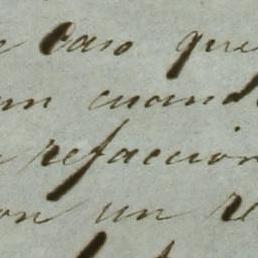 e caso que
un cuand
refaccion
on un re